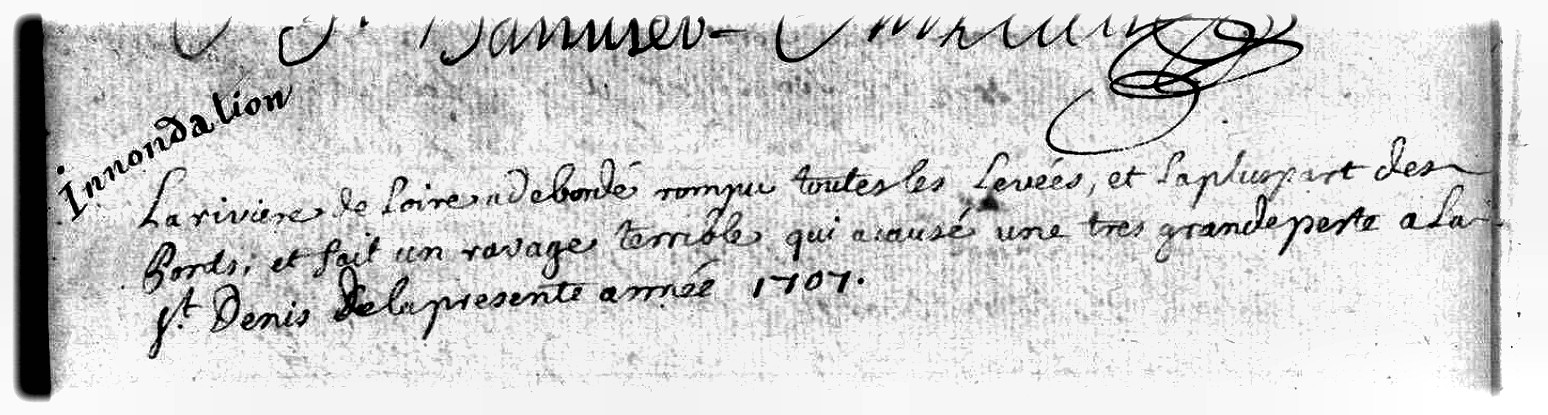 Innondation
La riviere de Loire a debordé rompu toutes les Levées, et la pluspart des
Ponts, et fait un ravage terrible qui a causé une tres grande perte a la
St. Denis de la presente année 1707.